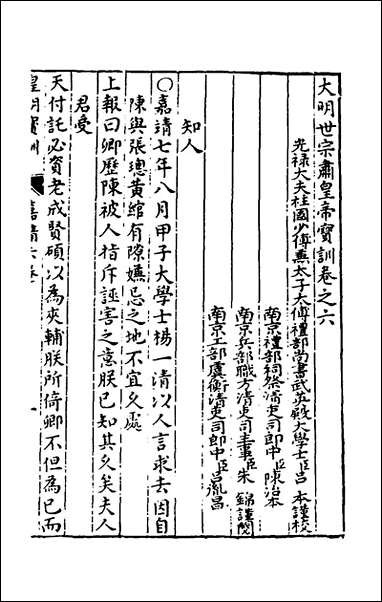 大明世宗肅皇帝寶訓卷之六
光祿大夫柱國少傅兼太子太傅禮部尚書武英殿大學士臣呂本謹校
南京禮部祠祭清吏司郎中臣陳治本
南京兵部職方清吏司主事臣朱錦謹閱
南京工部虞衡清吏司郎中臣呂胤昌
知人
○嘉靖七年八月甲子大學士楊一清以人言求去因自
陳與張璁黃綰有隙嫌忌之地不宜久處
上報曰卿歷陳被人指斥誣害之意朕已知其久矣夫人
君受
天付託必資老成賢碩以為夾輔朕所倚卿不但為已而
皇明寶訓 嘉靖六卷 一